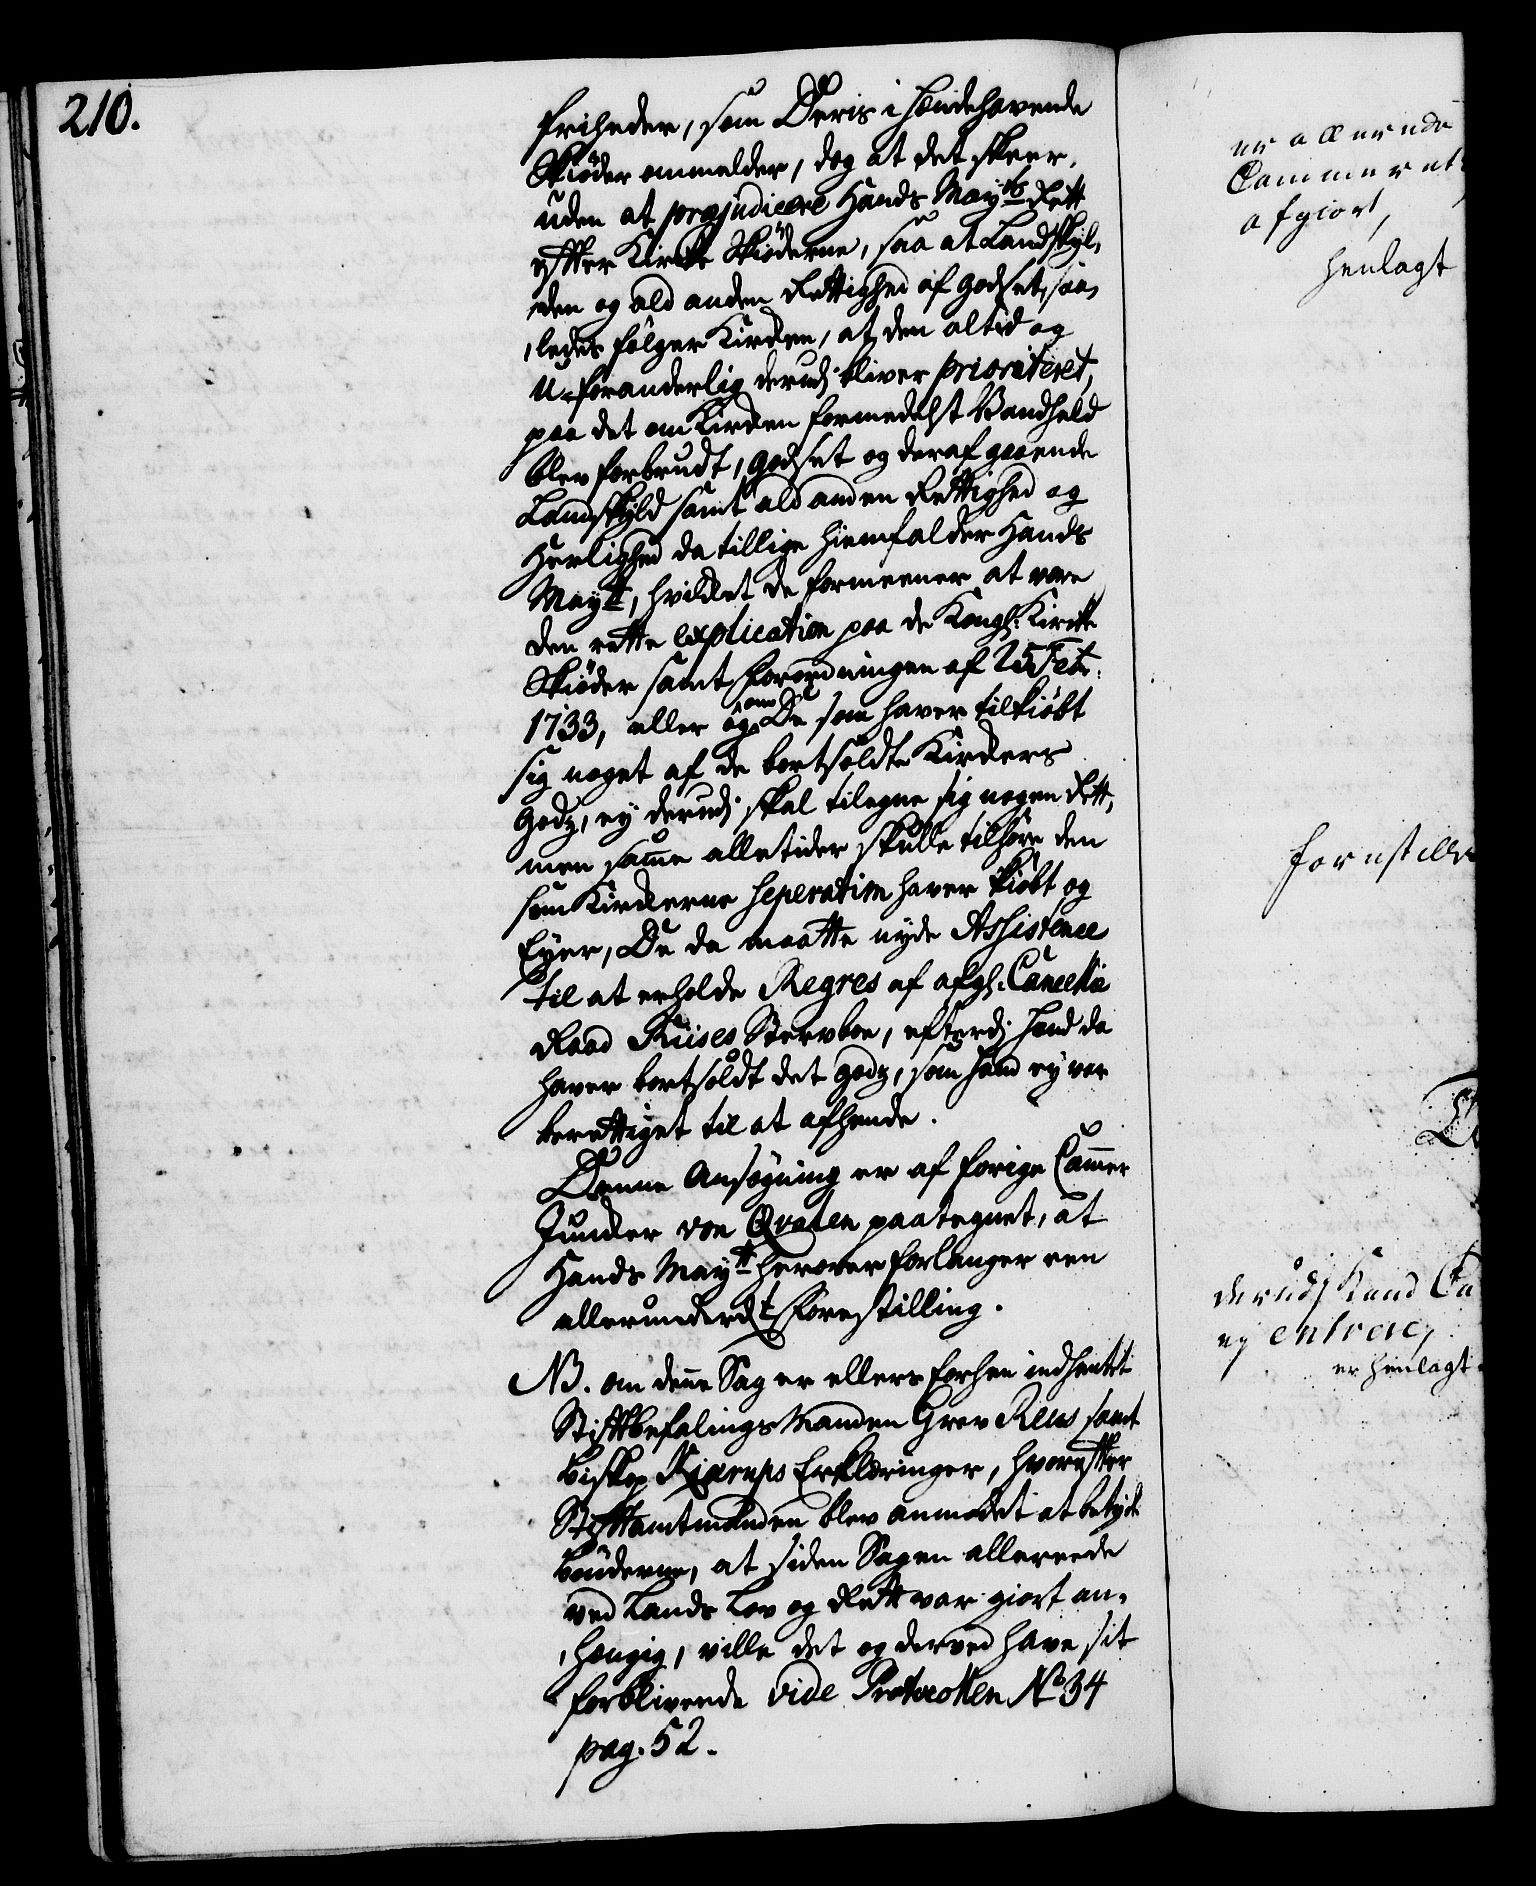 210.
friheder, som Deris i hændehavende
Skiøder ommelder, dog at det skeer,
uden at præjudicere Hands May:ts Rett
efter Kirke Skiøderne, saa at Landskyl,
den og ald anden Rettighed af godset, saa,
,ledes følger Kirken, at den altid og
U-foranderlig derudj bliver prioriteret,
paa det om Kirken formedelst Vandheld
blev forbrudt, godset og deraf gaaende
Landskyld samt ald anden Rettighed og
Herlighed da tillige hiemfalder Hands
May:tt, hvilket de formeener at være
den rette explication paa de Kongl: Kirke
Skiøder samt Forordningen af 25 Febr:
1733, eller og om De som haver tilkiøbt
sig noget af de bortsoldte Kirkers
godz, ey derudj skal tilegne sig nogen Rett,
men samme alle tider skulle tilhøre den
som Kirkerne seperatim haver kiøbt og
Eyer, De da maatte nyde Assistence
til at erholde Regres af afgl: Cancellie
Raad Riises Stervboe, efterdj hand da
haver bortsoldt det godz, som hand ey var
berettiget til at afhende.
Denne Ansøgning er af forige Cammer
Juncker von Qvalen paategnet, at
Hands May:tt herover forlanger een
allerunderd:t Forestilling.
NB. om denne Sag er ellers forhen indhentet
Stiftbefalings Manden Grev Reus samt
Biskop Kiærups Erklæringer, hvorefter
Stiftamtmanden blev anmodet at betyde
bønderne, at siden Sagen allereede
ved Lands Lov og Rett var giort an,
,hængig, ville det og derved have sit
forblivende vide Protocollen No 34
pag. 52.
er allerede
Cammeret
afgiort,
henlagt
forestille
derudj Kand
ey entrere,
er henlagt.